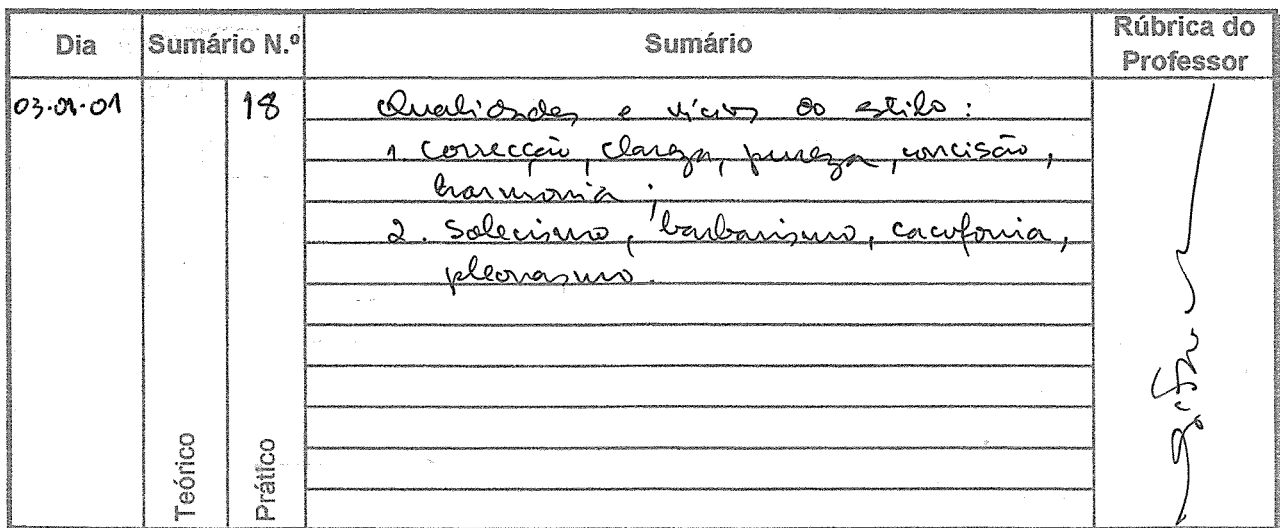 Dia Sumário N.º Sumário Rúbrica do Professor
03-01-01 18 Qualidades e vícios do estilo:
1. Correcção, clareza, pureza, concisão,
harmonia;
2. Solecismo, barbarismo, cacofonia,
pleonasmo.
Teórico Prático